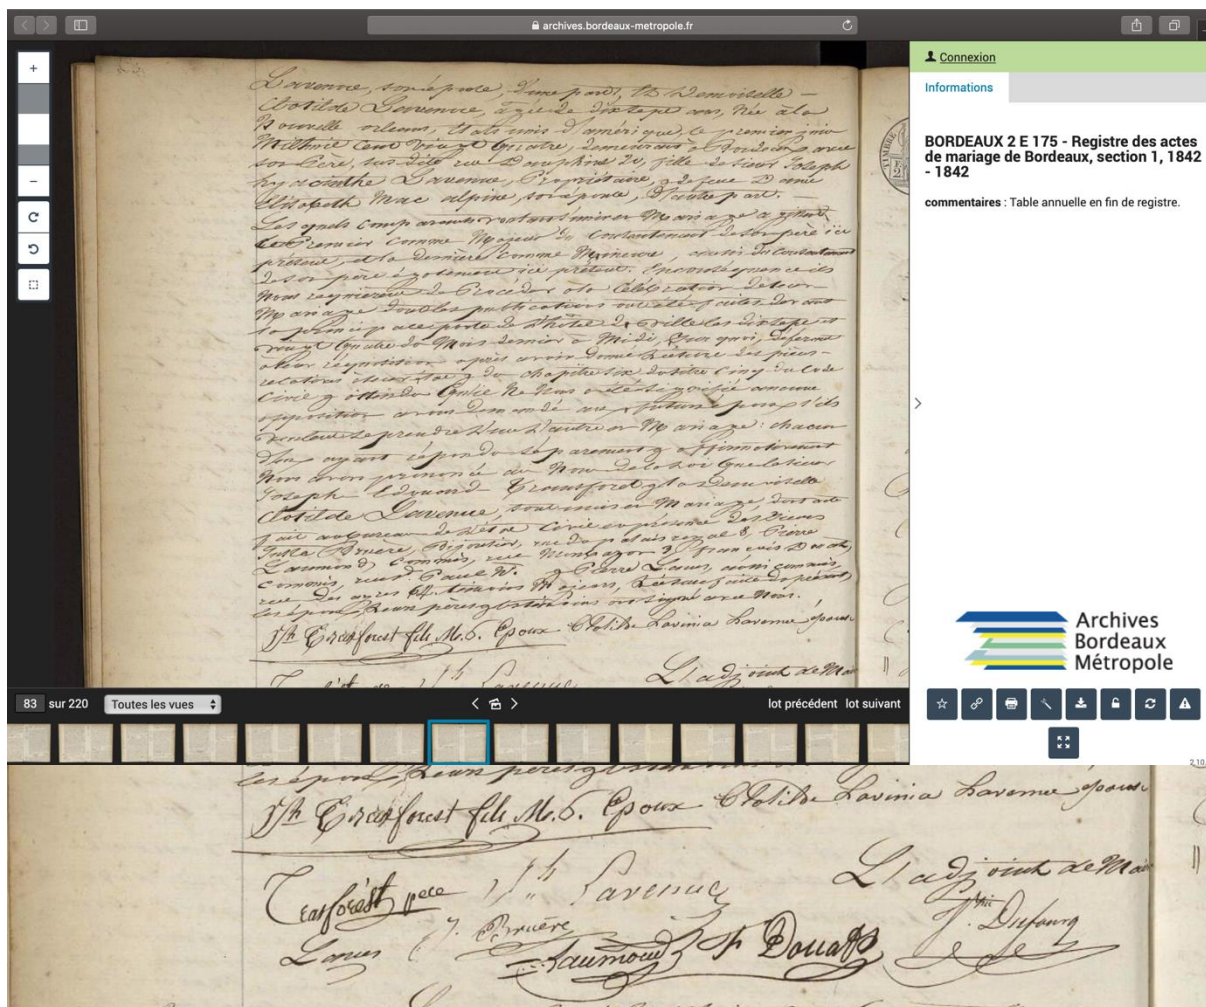 archives.bordeaux-metropole.fr
Lavenue, son épouse, d'une part, Et Demoiselle —
Clotilde Lavenue, agée de dix sept ans, née à la
Nouvelle orleans, Etats unis d'amérique, le premier juin
Mil huit Cent Vingt quatre, demeurant à Bordeaux avec
son Père, susdite rue Dauphine 20, fille de sieur Joseph
hyacinthe Lavenue, Propriétaire, & de feue Dame
Elisabeth Mac alpine, son épouse, D'autre part. —
Les quels comparants voulant s'unir en Mariage agissent
le Premier comme Majeur du Consentement de son père ici
présent, et la dernière comme Mineure, aussi du Consentement
de son père également ici présent. En conséquence ils
Nous requièrent de Procéder à la Célébration de leur
Mariage dont les publications ont été faites devant
la principale porte de l'hôtel de Ville les dix sept et
vingt quatre du Mois dernier à Midi, Sur quoi, déférant
à leur réquisition après avoir donné Lecture des pièces —
relatives à leur état & du chapitre six du titre Cinq du Code
Civil & attendu qu'il ne Nous a été signifié aucune
opposition avons demandé aux futurs époux s'ils
veulent se prendre l'un L'autre en Mariage: chacun
d'eux ayant répondu séparément & affirmativement
Nous avons prononcé au Nom de la Loi que le sieur
Joseph Edouard & la demoiselle
Clotilde Lavenue, sont unis en Mariage, dont acte
fait au bureau de l'état Civil en présence des Sieurs
Bruère, Bijoutier, rue du palais royal 8, Pierre
Laumond, commis, rue 3, francois Douat,
commis, rue St. Paul N. & Pierre Lanes, aussi commis,
rue des ayres 64 témoins Majeurs, Lecture faite du présent
les époux, Leurs pères & les témoins ont signé avec Nous.
fils M. 6. Epoux Clotilde Lavinia Lavenue épouse
Lavenue L'adjoint de Mai
83 sur 220 Toutes les vues lot précédent lot suivant
Connexion
Informations
BORDEAUX 2 E 175 - Registre des actes
de mariage de Bordeaux, section 1, 1842
- 1842
commentaires : Table annuelle en fin de registre.
TIMBRE
Archives
Bordeaux
Métropole
les époux, Leurs pères &
fils M. 6. Epoux Clotilde Lavinia Lavenue épouse
père Lavenue L'adjoint de Mai
Lanes J. Bruère Laumond F Douat Dufourg